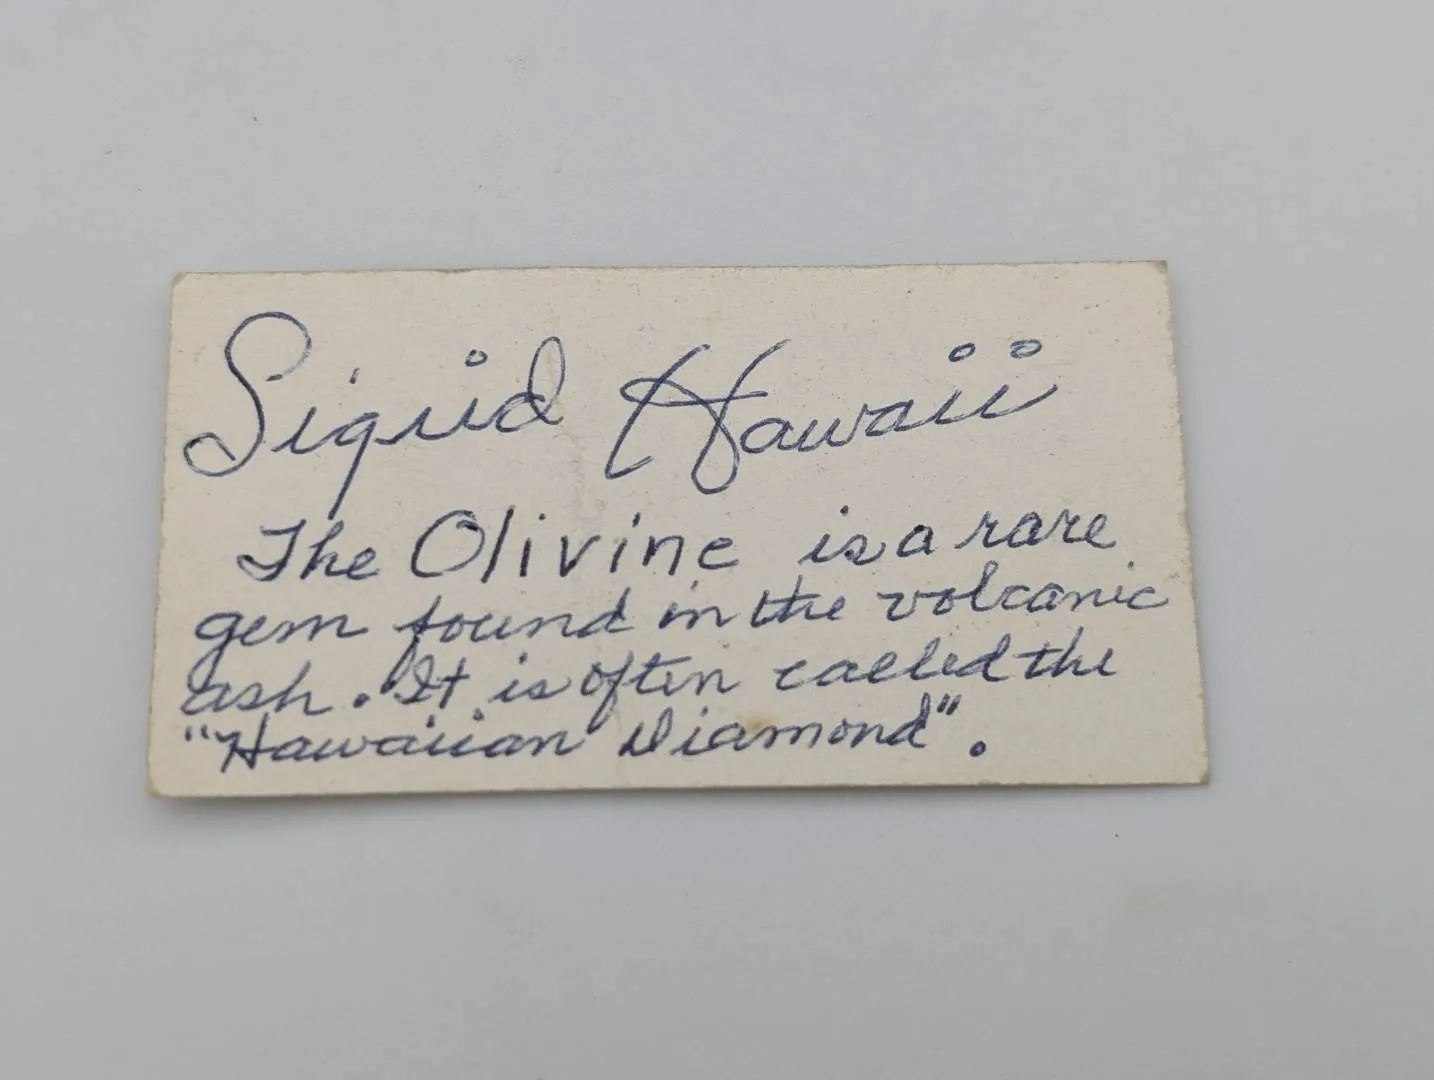 Sigrid Hawaii
The Olivine is a rare
gem found in the volcanic
ash. It is often called the
"Hawaiian Diamond".